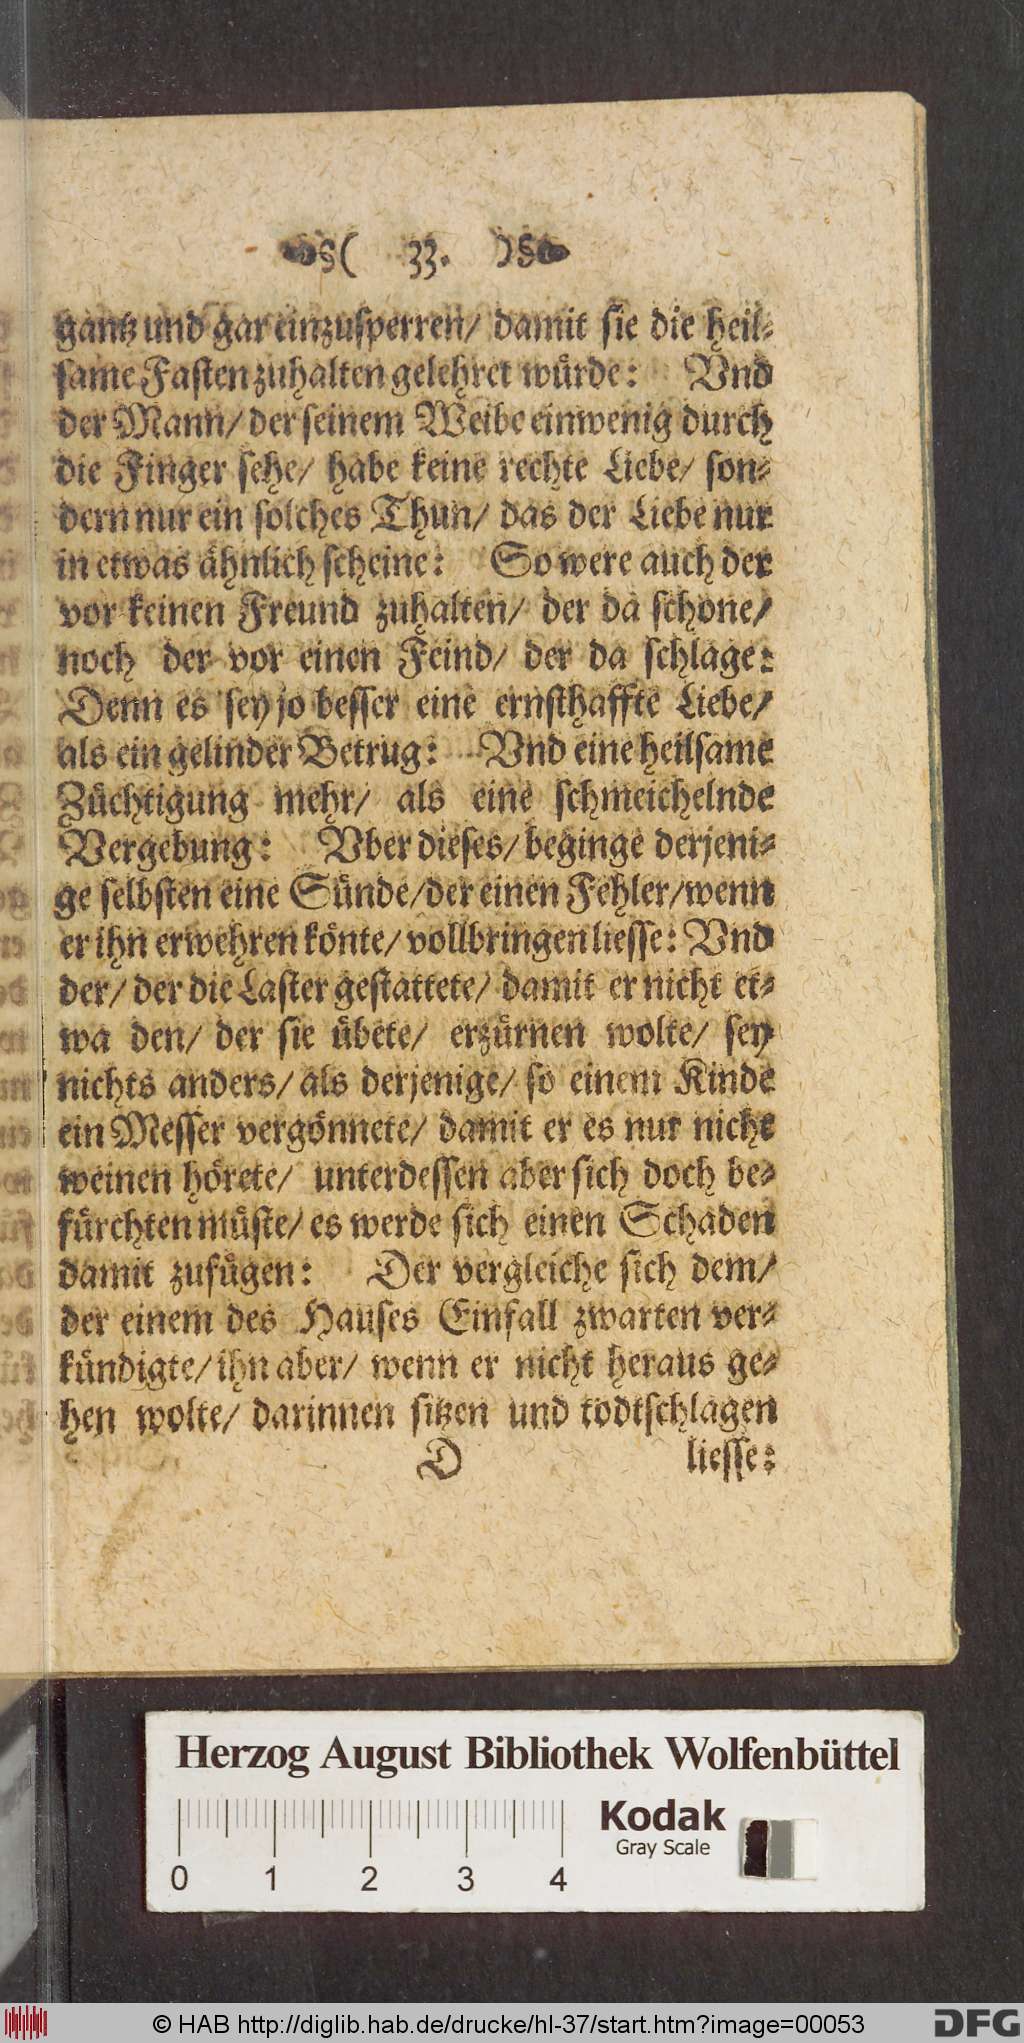 ( 33. )
gantz und gar einzusperren/ damit sie die heil-
same Fasten zuhalten gelehret würde: Vnd
der Mann/ der seinem Weibe einwenig durch
die Finger sehe/ habe keine rechte Liebe/ son-
dern nur ein solches Thun/ das der Liebe nur
in etwas ähnlich scheine: So were auch der
vor keinen Freund zuhalten/ der da schone/
noch der vor einen Feind/ der da schlage:
Denn es sey jo besser eine ernsthaffte Liebe/
als ein gelinder Betrug: Vnd eine heilsame
Züchtigung mehr/ als eine schmeichelnde
Vergebung: Vber dieses/ beginge derjeni-
ge selbsten eine Sünde/ der einen Fehler/ wenn
er ihn erwehren könte/ vollbringen liesse: Vnd
der/ der die Laster gestattete/ damit er nicht et-
wa den/ der sie übete/ erzürnen wolte/ sey
nichts anders/ als derjenige/ so einem Kinde
ein Messer vergönnete/ damit er es nur nicht
weinen hörete/ unterdessen aber sich doch be-
fürchten müste/ es werde sich einen Schaden
damit zufügen: Der vergleiche sich dem/
der einem des Hauses Einfall zwarten ver-
kündigte/ ihn aber/ wenn er nicht heraus ge-
hen wolte/ darinnen sitzen und todtschlagen
D liesse:
Herzog August Bibliothek Wolfenbüttel
Kodak
Gray Scale
0 1 2 3 4
© HAB http://diglib.hab.de/drucke/hl-37/start.htm?image=00053
DFG